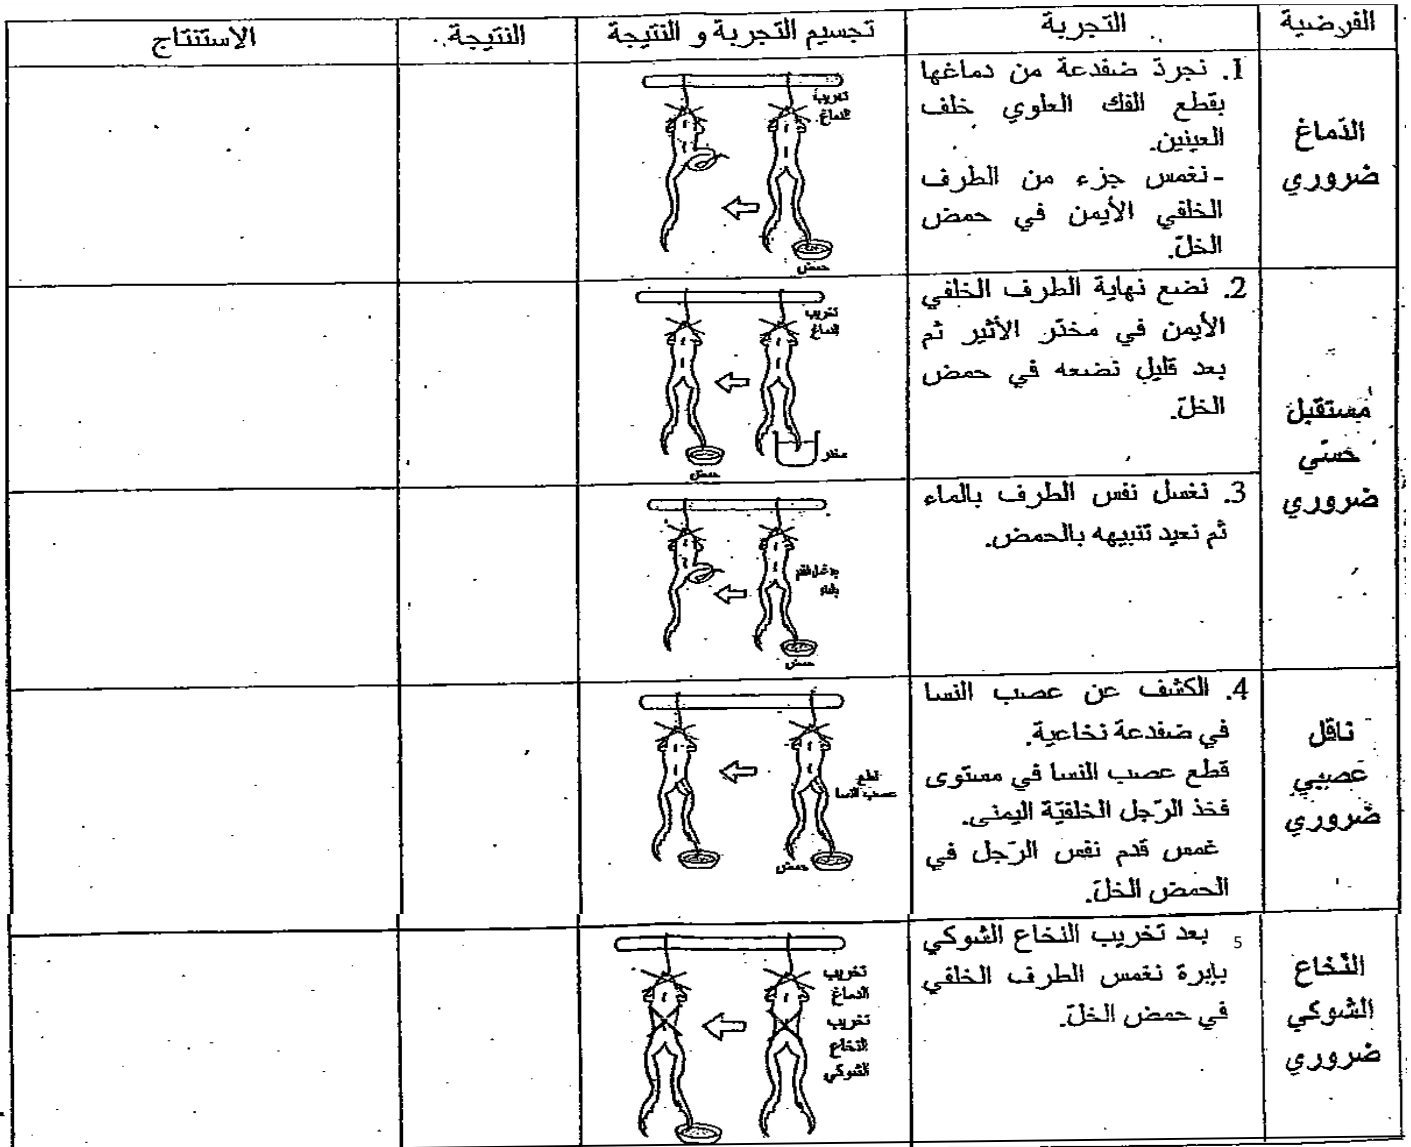 الفرضية
التجربة
تجسيم التجربة و النتيجة
النتيجة
الإستنتاج
الدّماغ
ضروري
1. نجردّ ضفدعة من دماغها
بقطع الفك العلوي خلف
العينين.
- نغمس جزء من الطرف
الخلفي الأيمن في حمض
الخلّ.
تخريب
الدماغ
حمض
مستقبل
حسّي
ضروري
2. نضع نهاية الطرف الخلفي
الأيمن في مخدّر الأثير ثم
بعد قليل نضعه في حمض
الخلّ.
تخريب
الدماغ
مخدر
حمض
3. نغسل نفس الطرف بالماء
ثم نعيد تنبيهه بالحمض.
بالماء
حمض
ناقل
عصبي
ضروري
4. الكشف عن عصب النسا
في ضفدعة نخاعية.
قطع عصب النسا في مستوى
فخذ الرّجل الخلفيّة اليمنى.
غمس قدم نفس الرّجل في
الحمض الخلّ.
قطع
عصب النسا
حمض
النّخاع
الشوكي
ضروري
5 بعد تخريب النخاع الشوكي
بإبرة نغمس الطرف الخلفي
في حمض الخلّ.
تخريب
الدماغ
تخريب
النخاع
الشوكي